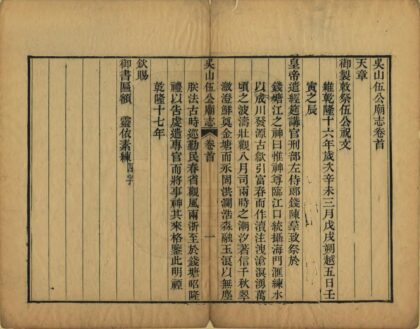 吳山伍公廟志卷首
天章
御製敕祭伍公祝文
維乾隆十六年歲次辛未三月戊戌朔越五日壬
寅之辰
皇帝遣經筵講官刑部左侍郎錢陳羣致祭於
錢塘江之神曰惟神尊臨江口統攝海門滙練水
以成川發源古歙引富春而作瀆注洩滄溟湧萬
頃之波濤壯觀八月司兩時之潮汐著信千秋翠
瀲澄鮮奠金塘而永固洪瀾浩淼融玉浪以無塵
吳山伍公廟志 卷首 一
朕法古時巡勤民春省觀風兩浙至於錢塘昭隆
禮以告虔遣專官而將事神其來格鑒此明禋
乾隆十七年
欽賜
御書匾額 靈依素練四字